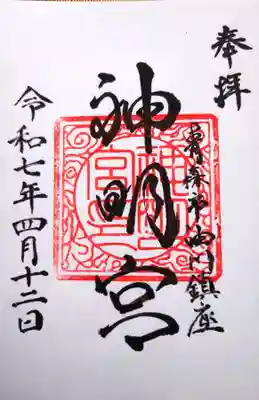 奉拝
青森市油川鎮座
神明宮
令和七年四月十二日